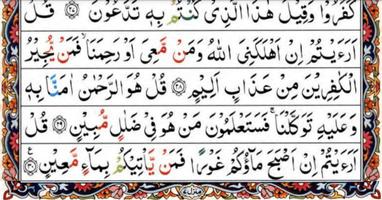 كَفَرُوْا وَقِيْلَ هٰذَا الَّذِىْ كُنْتُمْ بِهٖ تَدَّعُوْنَ ﴿۲۷﴾ قُلْ
اَرَءَيْتُمْ اِنْ اَهْلَكَنِىَ اللّٰهُ وَمَنْ مَّعِىَ اَوْ رَحِمَنَا ۙ فَمَنْ يُّجِيْرُ
الْكٰفِرِيْنَ مِنْ عَذَابٍ اَلِيْمٍ ﴿۲۸﴾ قُلْ هُوَ الرَّحْمٰنُ اٰمَنَّا بِهٖ
وَعَلَيْهِ تَوَكَّلْنَا ۚ فَسَتَعْلَمُوْنَ مَنْ هُوَ فِىْ ضَلٰلٍ مُّبِيْنٍ ﴿۲۹﴾ قُلْ
اَرَءَيْتُمْ اِنْ اَصْبَحَ مَآؤُكُمْ غَوْرًا فَمَنْ يَّاْتِيْكُمْ بِمَآءٍ مَّعِيْنٍ ﴿۳۰﴾